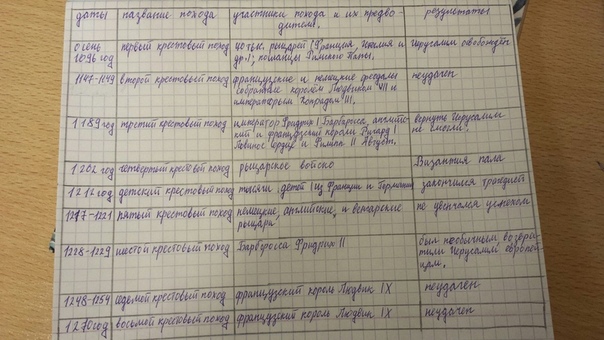 даты название похода участники похода и их предво- результаты
дители.
осень первый крестовый поход 40 тыс. рыцарей (Франция, Италия и Иерусалим освобождён
1096 год др.), посланцы Римского Папы.
1147-1149 второй крестовый поход французские и немецкие феодалы неудачен
собранные королём Людвиком VII и
императором Конрадом III.
1189 год третий крестовый поход император Фридрих I Барбаросса, английс- вернуть Иерусалим
кий и французский короли Ричард I не смогли.
Львиное сердце и Филипп II Август.
1202 год четвертый крестовый поход рыцарское войско Византия пала
1212 год детский крестовый поход тысячи детей из Франции и Германии закончился трагедией
1217-1221 пятый крестовый поход немецкие, английские, и венгерские не увенчался успехом
рыцари
1228-1229 шестой крестовый поход Барбаросса Фридрих II был необычным, возвра-
тили Иерусалим европей-
цам.
1248-1254 седьмой крестовый поход французский король Людвик IX неудачен
1270 год восьмой крестовый поход французский король Людвик IX неудачен